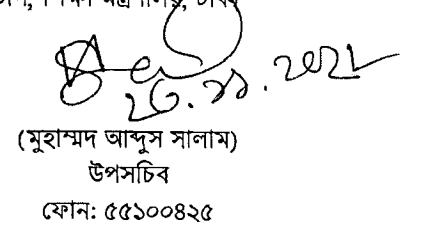 ২৩.১১.২০২১
(মুহাম্মদ আব্দুস সালাম)
উপসচিব
ফোন: ৫৫১০০৪২৫